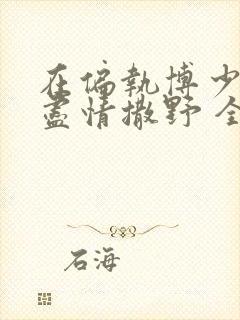 在偏執博少
盡情撒野 全
石海